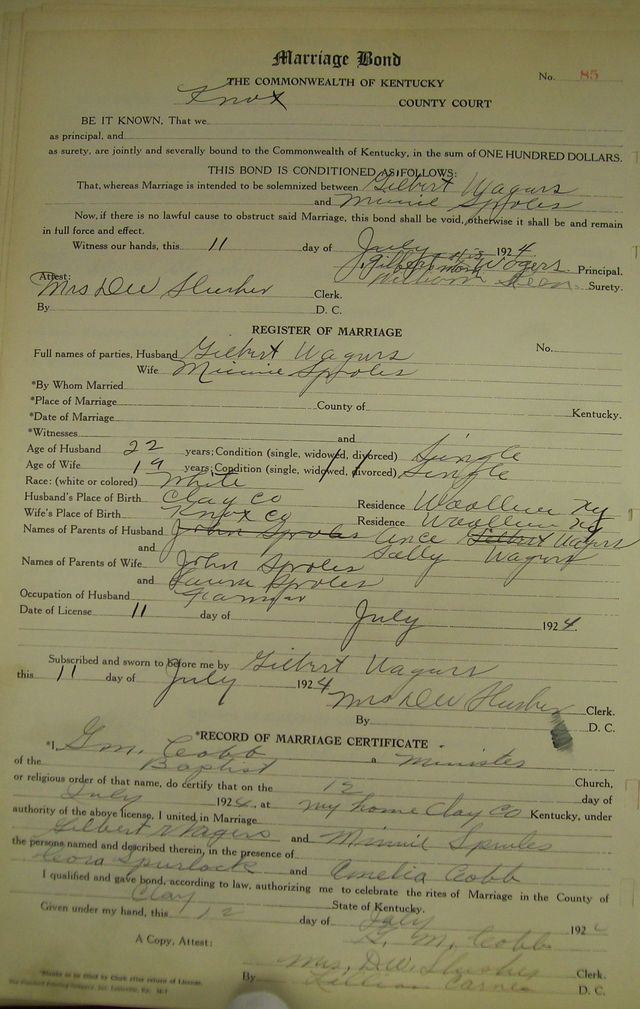 Marriage Bond
No. 85
THE COMMONWEALTH OF KENTUCKY
Knox COUNTY COURT
BE IT KNOWN, That we
as principal, and
as surety, are jointly and severally bound to the Commonwealth of Kentucky, in the sum of ONE HUNDRED DOLLARS.
THIS BOND IS CONDITIONED AS FOLLOWS:
That, whereas Marriage is intended to be solemnized between Gilbert Wagurs
and Minnie Sproles
Now, if there is no lawful cause to obstruct said Marriage, this bond shall be void, otherwise it shall be and remain
in full force and effect.
Witness our hands, this 11 day of July 1924
Gilbert Wagers Principal.
Attest: William Surety.
Mrs DW Slusher Clerk.
By D. C.
REGISTER OF MARRIAGE
Full names of parties, Husband Gilbert Wagurs No.
Wife Minnie Sproles
*By Whom Married
*Place of Marriage County of Kentucky.
*Date of Marriage
*Witnesses and
Age of Husband 22 years; Condition (single, widowed, divorced) Single
Age of Wife 19 years; Condition (single, widowed, divorced) 11 Single
Race: (white or colored) White
Husband's Place of Birth Clay Co Residence Woollum Ky
Wife's Place of Birth Knox Co Residence Woollum Ky
Names of Parents of Husband John Sproles Gilbert Wagurs
and Sally Wagurs
Names of Parents of Wife John Sproles
and Laura Sproles
Occupation of Husband Farmer
Date of License 11 day of July 1924.
Subscribed and sworn to before me by Gilbert Wagurs
this 11 day of July 1924
Mrs DW Slusher Clerk.
By D. C.
*RECORD OF MARRIAGE CERTIFICATE
*I, G.M. Cobb a Minister
of the Baptist Church,
or religious order of that name, do certify that on the 12 day of
July 1924, at my home Clay Co Kentucky, under
authority of the above license, I united in Marriage
Gilbert Wagers and Minnie Sproles
the persons named and described therein, in the presence of
Cora Spurlock and Amelia Cobb
I qualified and gave bond, according to law, authorizing me to celebrate the rites of Marriage in the County of
Clay State of Kentucky.
Given under my hand, this 12 day of July 192
G. M. Cobb
A Copy, Attest:
Mrs, D.W. Slusher Clerk.
By Lillian Carnes D. C.
*Blanks to be filled by Clerk after return of License.